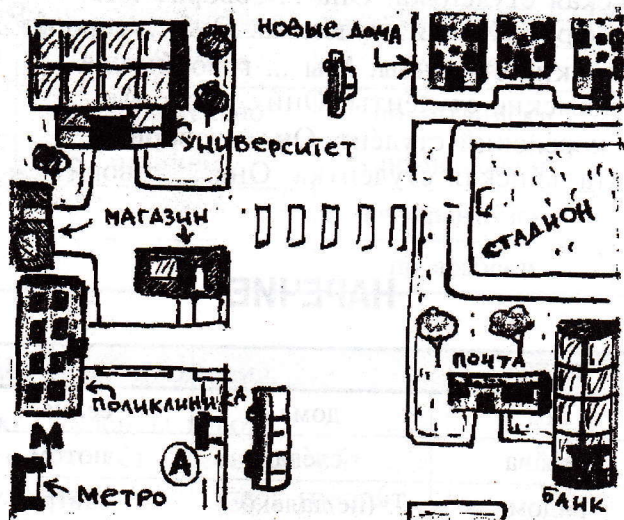 НОВЫЕ ДОМА
УНИВЕРСИТЕТ
МАГАЗИН
СТАДИОН
ПОЧТА
ПОЛИКЛИНИКА
М
А
МЕТРО
БАНК